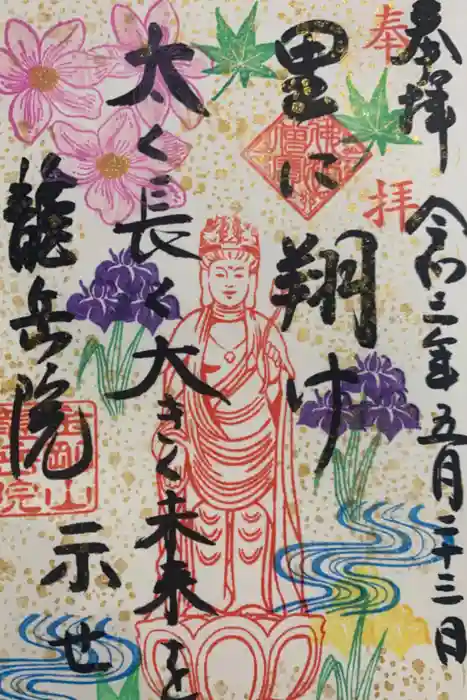 奉拝 令和三年五月二十三日
奉拝
里に翔け
太く長く大きく未来を
龍岳院 示せ